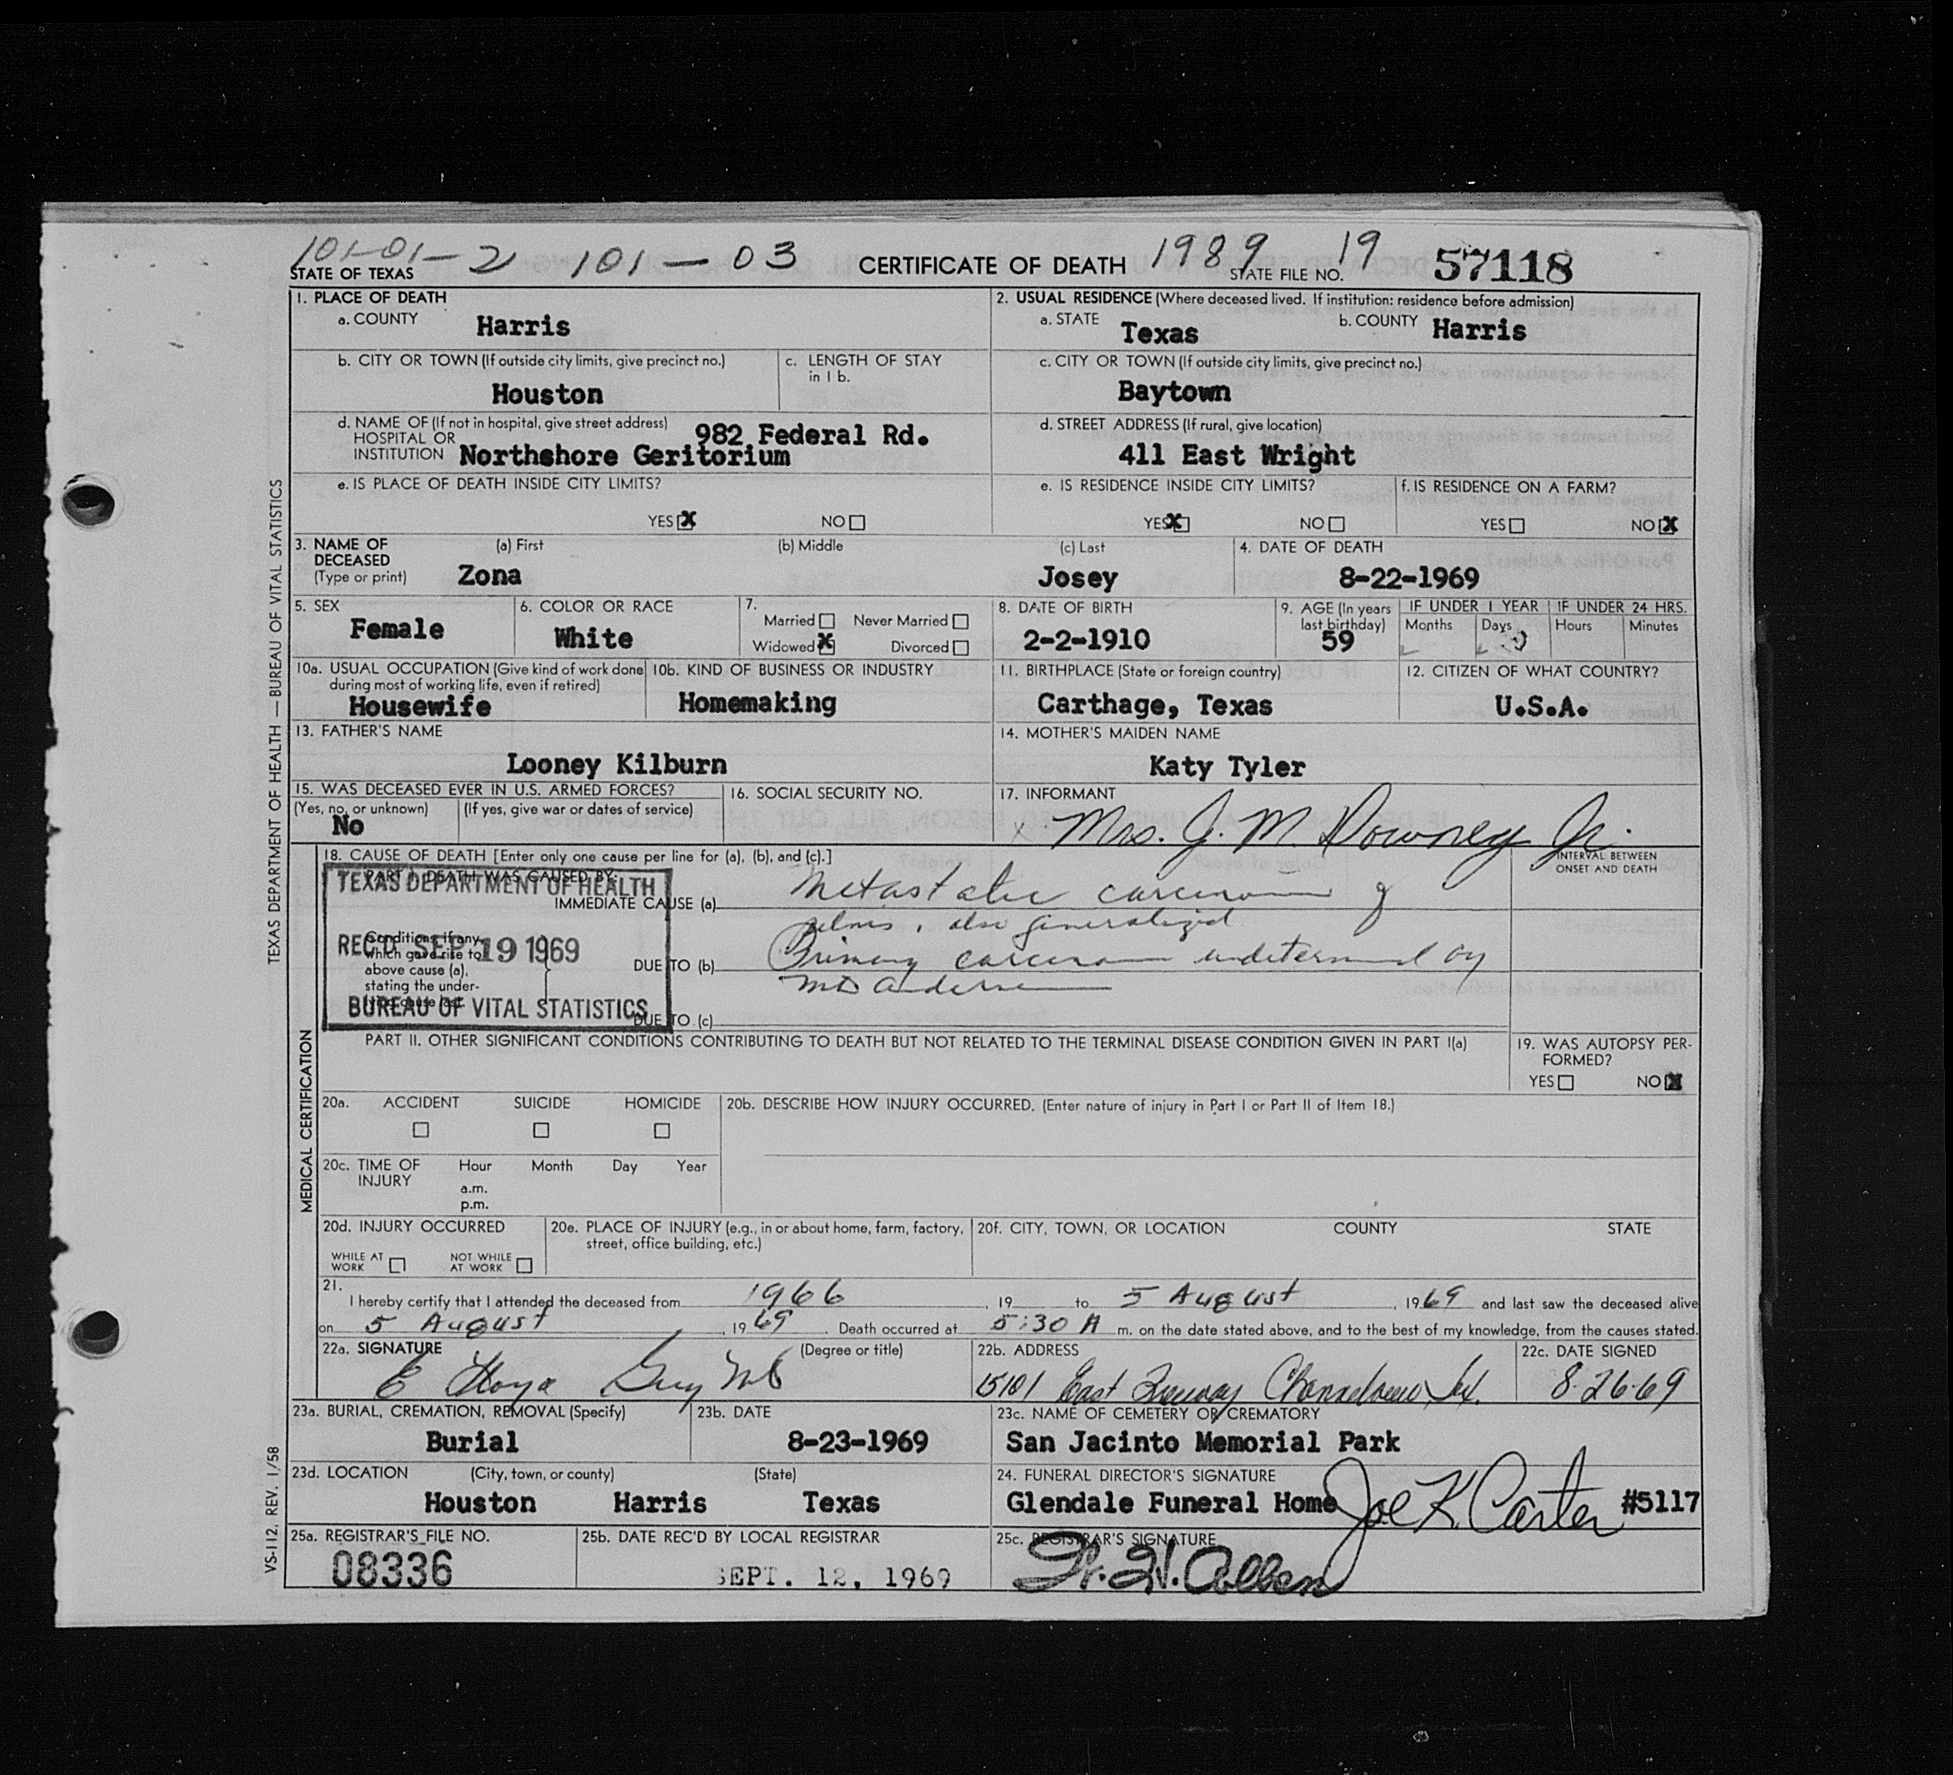 101-01-2 101-03 CERTIFICATE OF DEATH 1989 19 57118
STATE OF TEXAS STATE FILE NO.
1. PLACE OF DEATH
a. COUNTY Harris
2. USUAL RESIDENCE (Where deceased lived. If institution: residence before admission)
a. STATE Texas b. COUNTY Harris
b. CITY OR TOWN (If outside city limits, give precinct no.) Houston
c. LENGTH OF STAY in 1 b.
c. CITY OR TOWN (If outside city limits, give precinct no.)
Baytown
d. NAME OF (If not in hospital, give street address) HOSPITAL OR INSTITUTION 982 Federal Rd.
Northshore Geritorium
d. STREET ADDRESS (If rural, give location)
411 East Wright
e. IS PLACE OF DEATH INSIDE CITY LIMITS?
YES X NO
e. IS RESIDENCE INSIDE CITY LIMITS?
YES X NO
f. IS RESIDENCE ON A FARM?
YES NO X
3. NAME OF DECEASED (Type or print)
(a) First (b) Middle (c) Last
Zona Josey
4. DATE OF DEATH
8-22-1969
5. SEX
Female
6. COLOR OR RACE
White
7. Married Never Married
Widowed X Divorced
8. DATE OF BIRTH
2-2-1910
9. AGE (In years last birthday)
59
IF UNDER 1 YEAR IF UNDER 24 HRS.
Months Days Hours Minutes
10a. USUAL OCCUPATION (Give kind of work done during most of working life, even if retired)
Housewife
10b. KIND OF BUSINESS OR INDUSTRY
Homemaking
11. BIRTHPLACE (State or foreign country)
Carthage, Texas
12. CITIZEN OF WHAT COUNTRY?
U.S.A.
13. FATHER'S NAME
Looney Kilburn
14. MOTHER'S MAIDEN NAME
Katy Tyler
15. WAS DECEASED EVER IN U.S. ARMED FORCES?
(Yes, no, or unknown) (If yes, give war or dates of service)
No
16. SOCIAL SECURITY NO.
17. INFORMANT
x Mrs. J. M. Downey Jr.
18. CAUSE OF DEATH [Enter only one cause per line for (a), (b), and (c).]
INTERVAL BETWEEN ONSET AND DEATH
PART I. DEATH WAS CAUSED BY:
TEXAS DEPARTMENT OF HEALTH
REC'D SEP 19 1969
BUREAU OF VITAL STATISTICS
IMMEDIATE CAUSE (a) Metastatic carcinoma of
pelvis, also generalized
Conditions, if any, which gave rise to above cause (a), stating the under-lying cause last.
DUE TO (b) Primary carcinoma undetermined by
MD Anderson
DUE TO (c)
PART II. OTHER SIGNIFICANT CONDITIONS CONTRIBUTING TO DEATH BUT NOT RELATED TO THE TERMINAL DISEASE CONDITION GIVEN IN PART I(a)
19. WAS AUTOPSY PER-FORMED?
YES NO X
20a. ACCIDENT SUICIDE HOMICIDE
20b. DESCRIBE HOW INJURY OCCURRED. (Enter nature of injury in Part I or Part II of Item 18.)
20c. TIME OF INJURY Hour Month Day Year
a.m.
p.m.
20d. INJURY OCCURRED
WHILE AT WORK NOT WHILE AT WORK
20e. PLACE OF INJURY (e.g., in or about home, farm, factory, street, office building, etc.)
20f. CITY, TOWN, OR LOCATION COUNTY STATE
21.
I hereby certify that I attended the deceased from 1966, 19 to 5 August, 1969 and last saw the deceased alive
on 5 August, 1969. Death occurred at 5:30 A m. on the date stated above, and to the best of my knowledge, from the causes stated.
22a. SIGNATURE (Degree or title)
E Guy MD
22b. ADDRESS
15101 East Freeway Channelview, Tx.
22c. DATE SIGNED
8-26-69
23a. BURIAL, CREMATION, REMOVAL (Specify)
Burial
23b. DATE
8-23-1969
23c. NAME OF CEMETERY OR CREMATORY
San Jacinto Memorial Park
23d. LOCATION (City, town, or county) (State)
Houston Harris Texas
24. FUNERAL DIRECTOR'S SIGNATURE
Glendale Funeral Home Joe K. Carter #5117
25a. REGISTRAR'S FILE NO.
08336
25b. DATE REC'D BY LOCAL REGISTRAR
SEPT. 12, 1969
25c. REGISTRAR'S SIGNATURE
TEXAS DEPARTMENT OF HEALTH — BUREAU OF VITAL STATISTICS
MEDICAL CERTIFICATION
VS-112, REV. 1/58